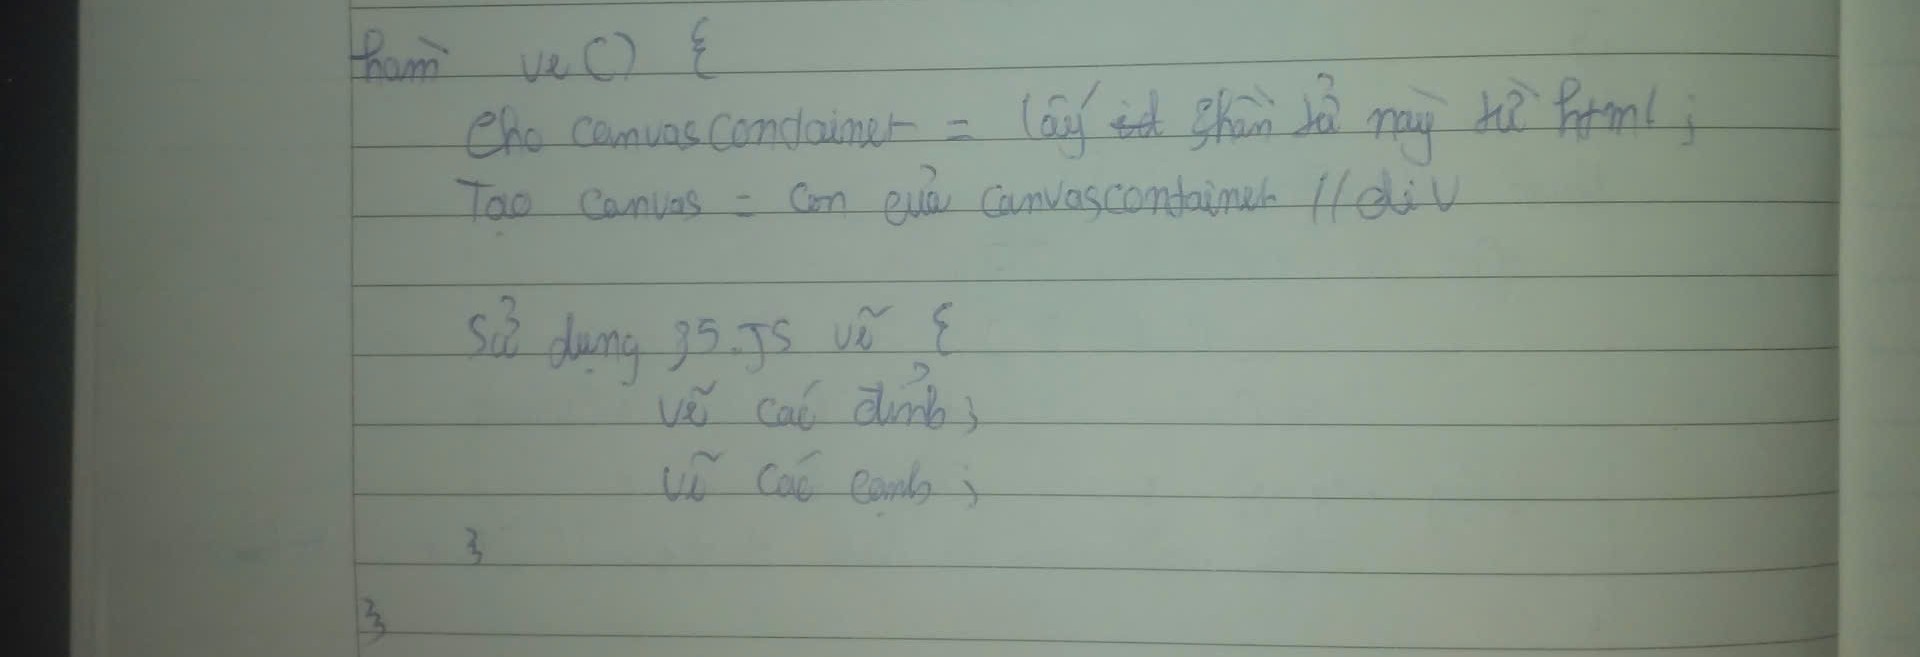 hàm ve() {
cho canvascontainer = lấy phần tử này từ html ;
Tạo canvas = con của canvascontainer // div
Sử dụng p5.JS vẽ {
vẽ các đỉnh ;
vẽ các cạnh ;
}
}